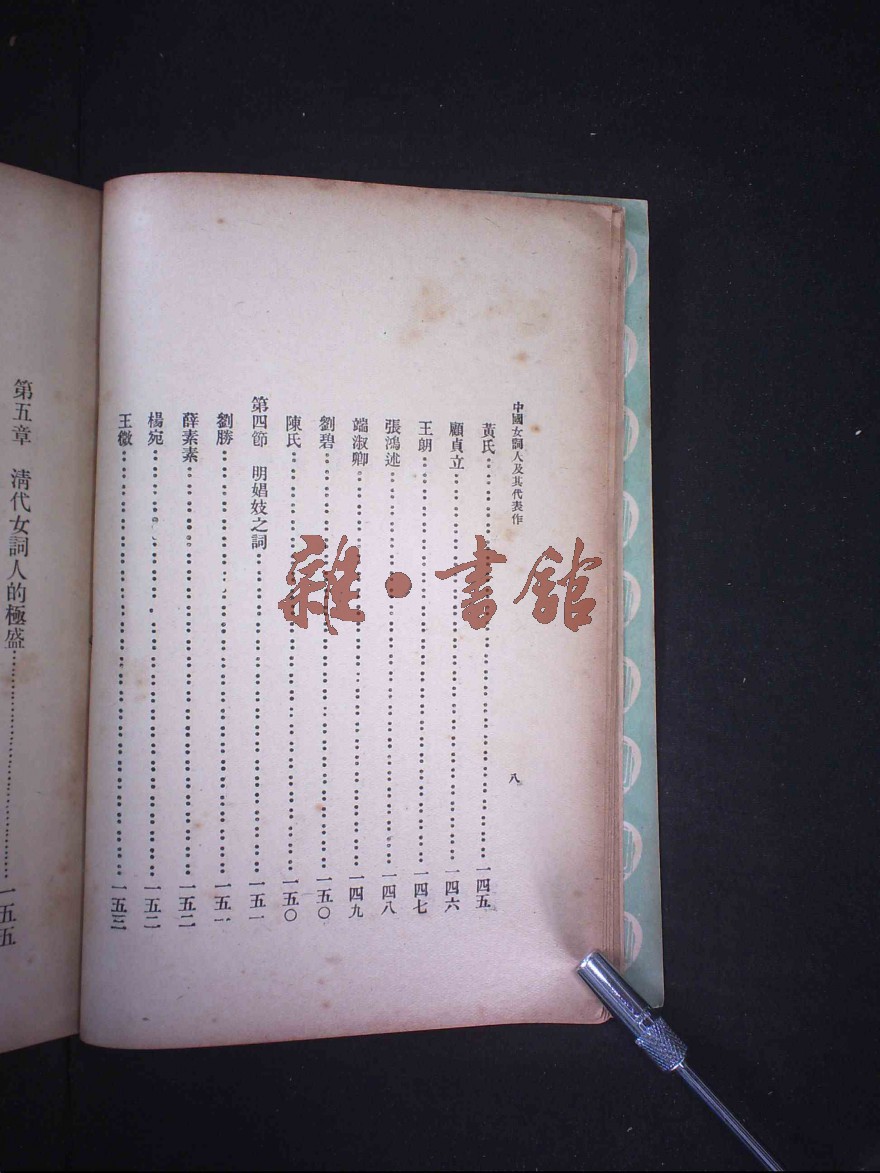 中國女詞人及其代表作
八
黃氏……一四五
顧貞立……一四六
王朗……一四七
張鴻述……一四八
端淑卿……一四九
劉碧……一五〇
陳氏……一五〇
第四節　明娼妓之詞……一五一
劉勝……一五一
薛素素……一五二
楊宛……一五二
王微……一五三
第五章　清代女詞人的極盛……一五五
雜·書館